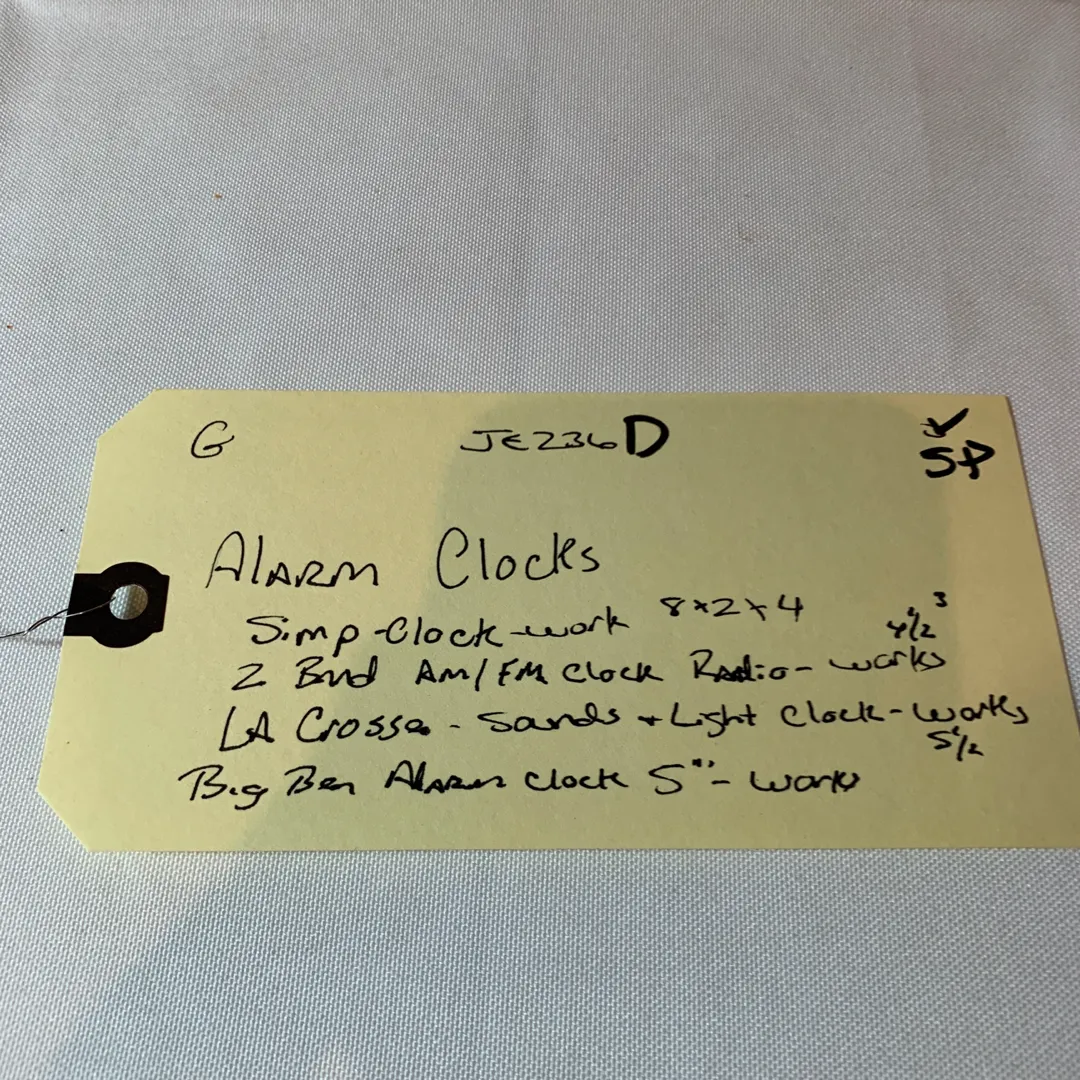 G JE236D SP
Alarm Clocks
Simp-Clock-work 8x2x4
4 1/2 3
2 Bnd Am/FM Clock Radio - works
LA Crosse - Sounds + Light Clock - works
5 1/2
Big Ben Alarm Clock 5" - works